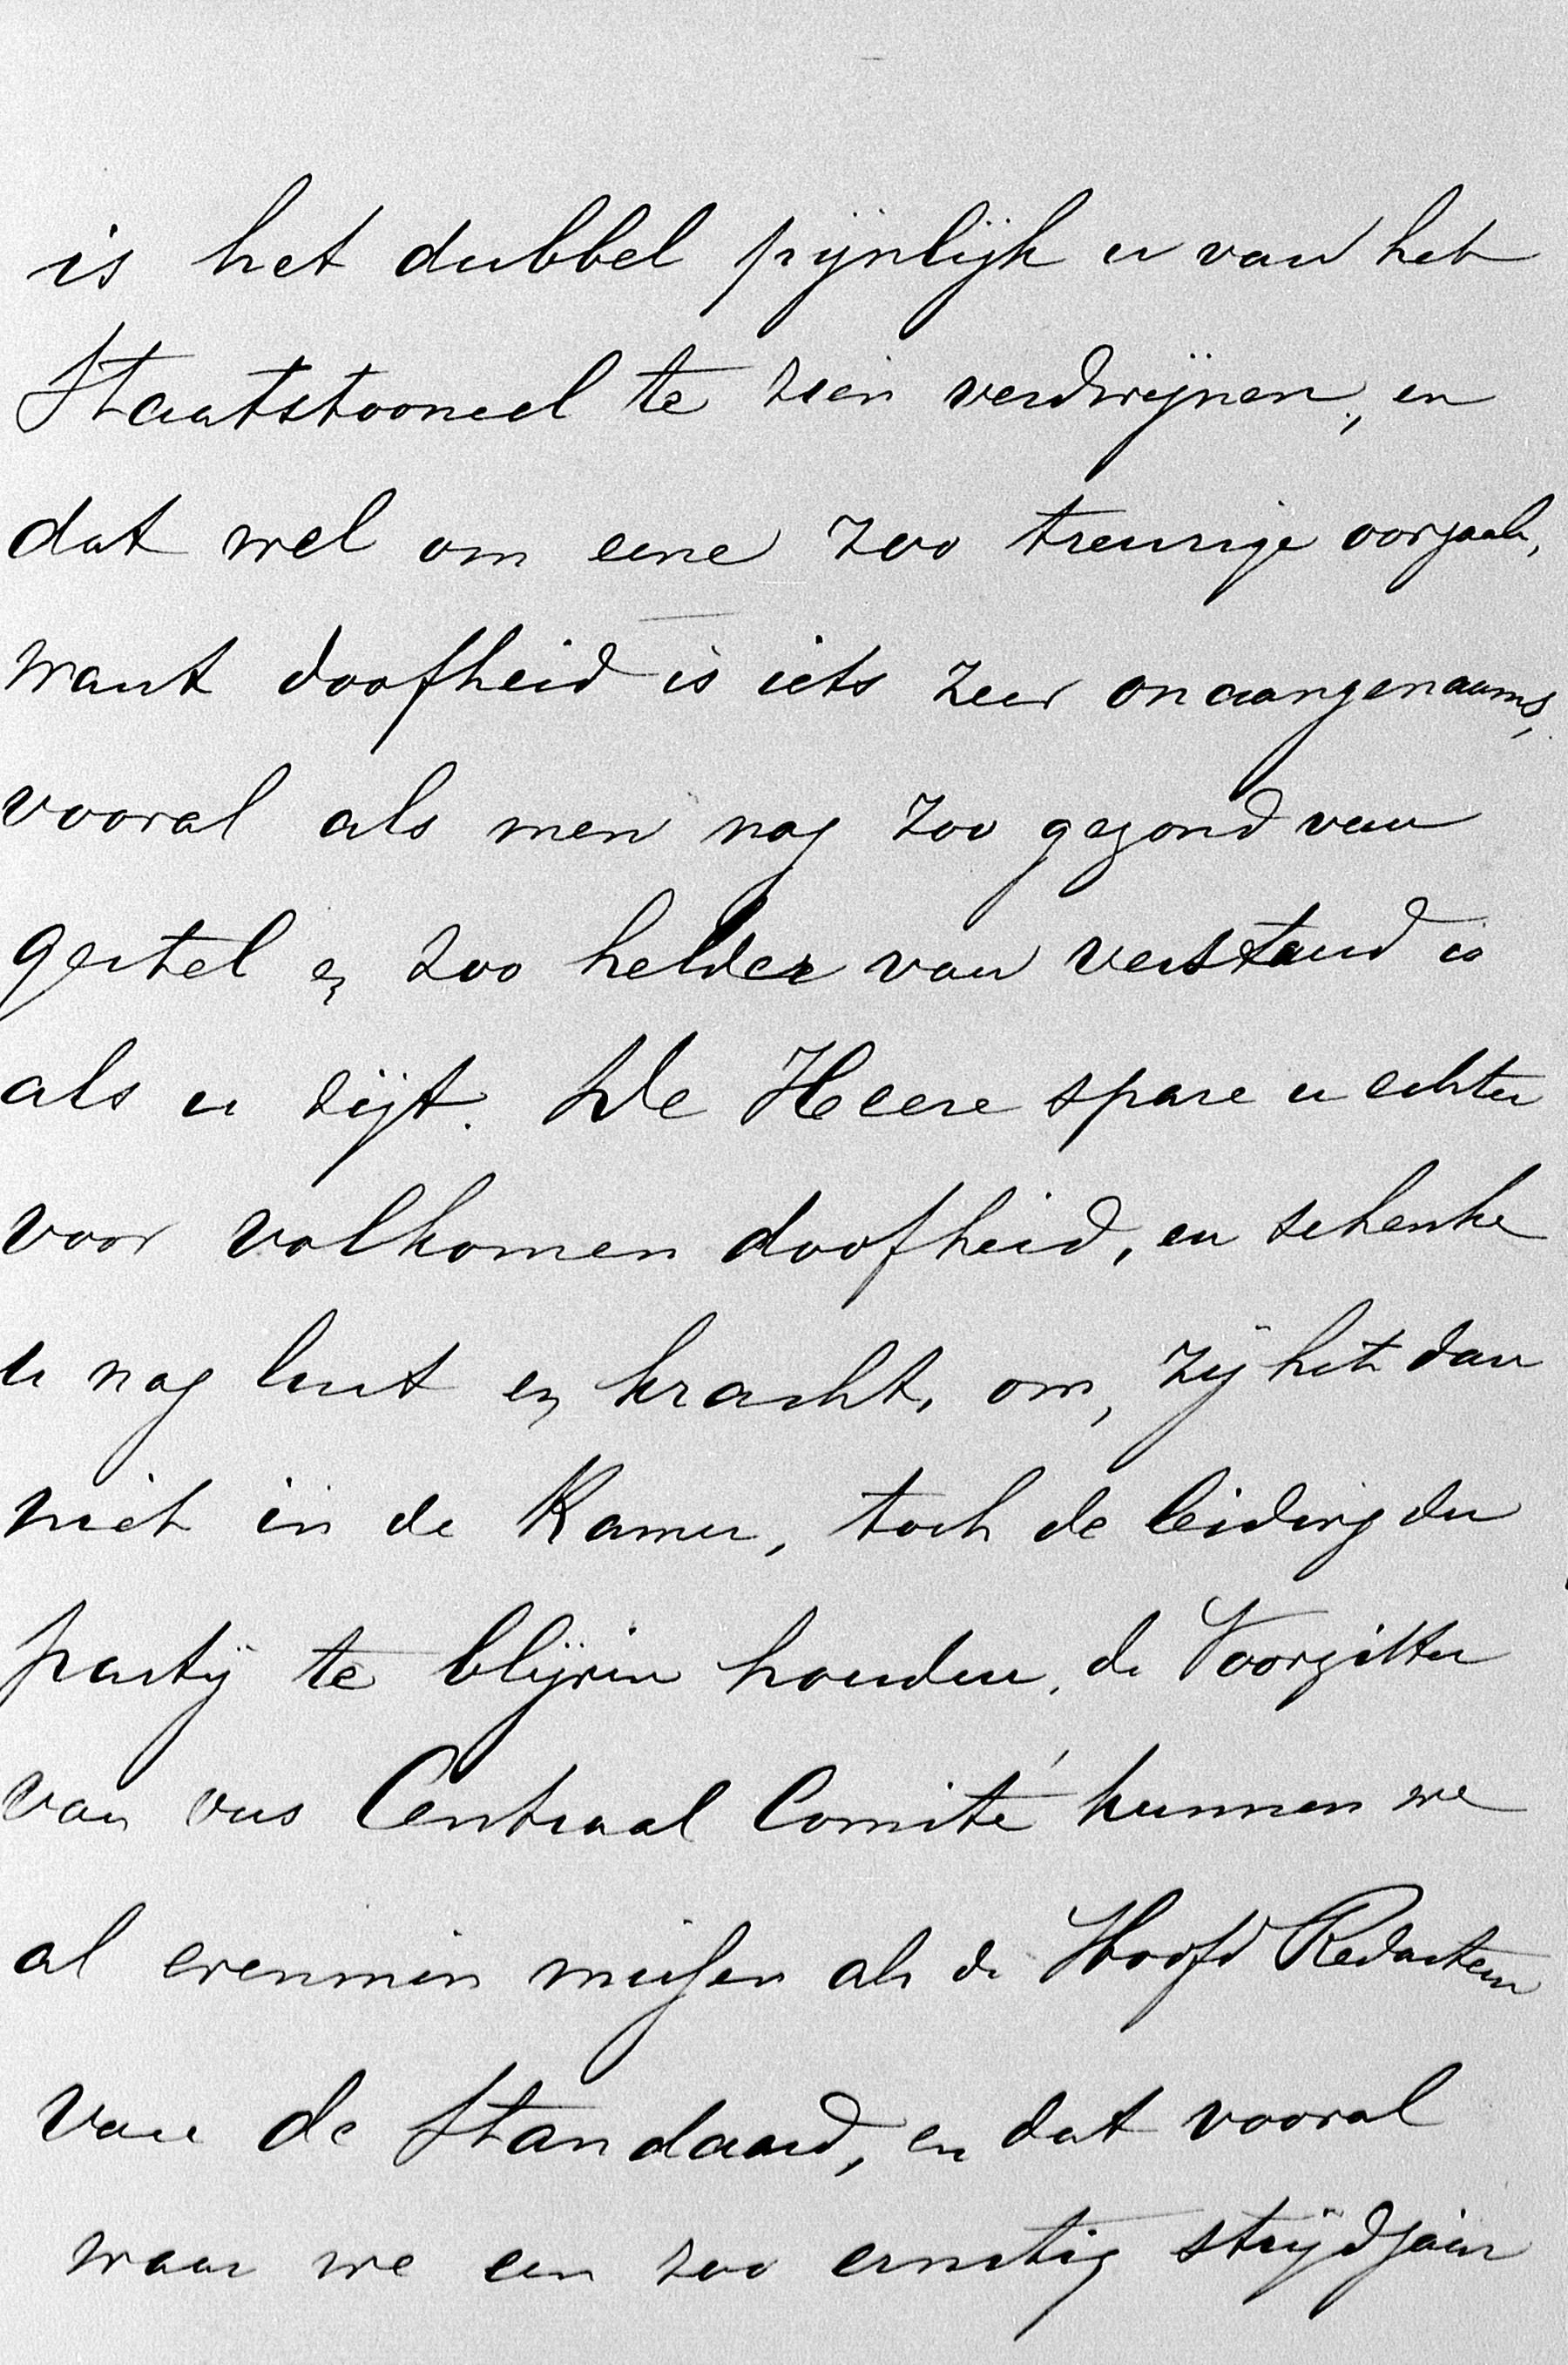 is het dubbel pijnlijk u van het
Staatstooneel te zien verdwijnen, en
dat wel om eene zoo treurige oorzaak,
want doofheid is iets zeer onaangenaams,
vooral als men nog zoo gezond van
gestel en zoo helder van verstand is
als u zijt. De Heere spare u echter
voor volkomen doofheid, en schenke
u nog lust en kracht, om, zij het dan
niet in de Kamer, toch de leiding der
partij te blijven houden, de Voorzitter
van ons Centraal Comité kunnen we
al evenmin missen als de Hoofd Redacteur
van de Standaard, en dat vooral
waar we een zoo ernstig strijdjaar